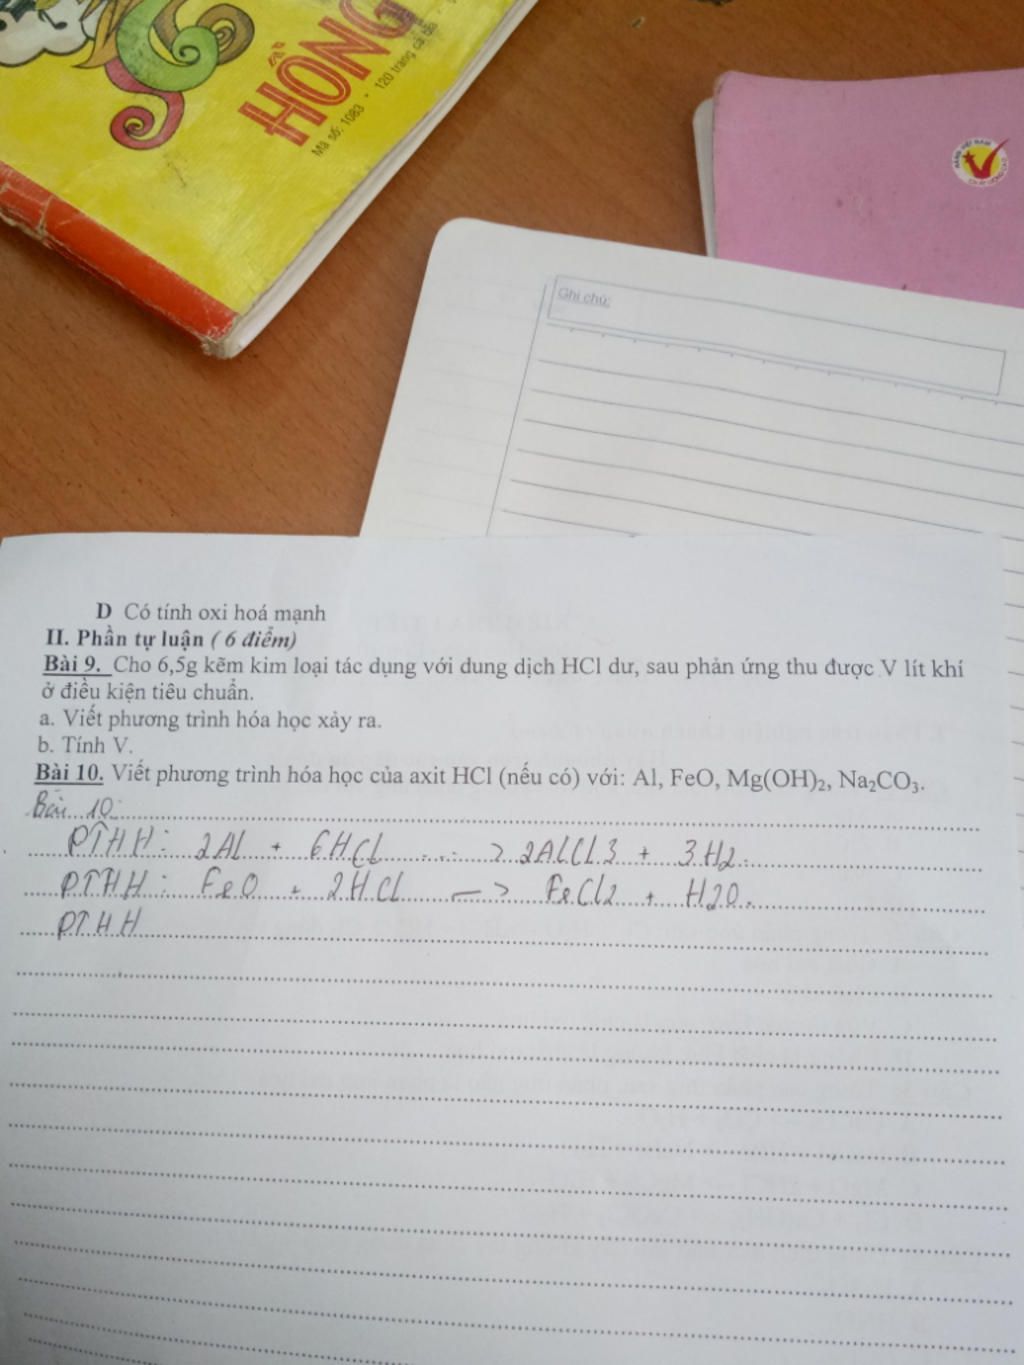 HỒNG
Mã số: 1083 • 120 trang
Ghi chú:
D Có tính oxi hoá mạnh
II. Phần tự luận ( 6 điểm)
Bài 9. Cho 6,5g kẽm kim loại tác dụng với dung dịch HCl dư, sau phản ứng thu được V lít khí
ở điều kiện tiêu chuẩn.
a. Viết phương trình hóa học xảy ra.
b. Tính V.
Bài 10. Viết phương trình hóa học của axit HCl (nếu có) với: Al, FeO, Mg(OH)₂, Na₂CO₃.
Bài 10:
PTHH: 2Al + 6HCl ---> 2AlCl3 + 3H2.
PTHH: FeO + 2HCl —> FeCl2 + H2O.
PTHH